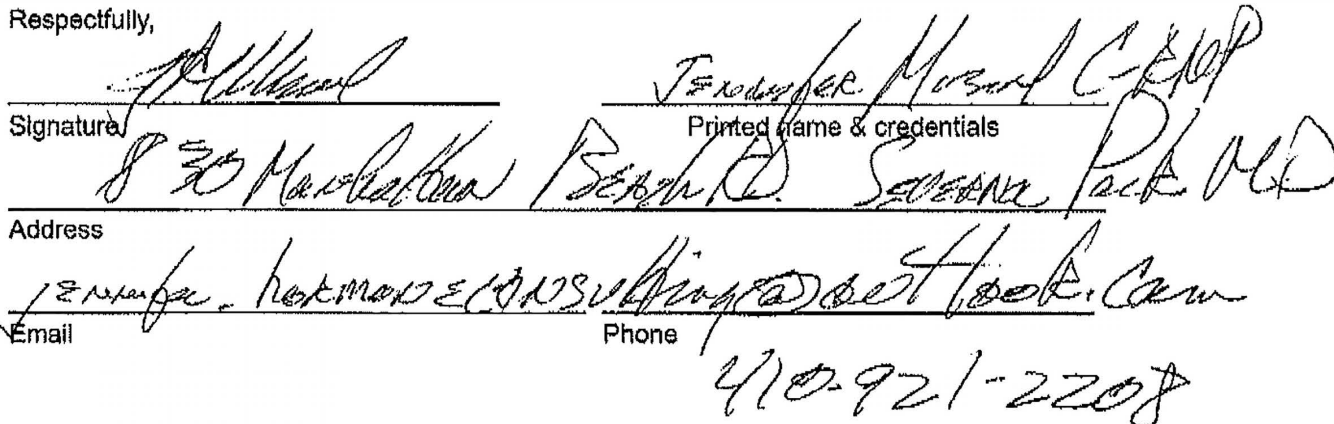 Respectfully,
Jennifer C-RNP
Signature Printed name & credentials
830 Manhattan Beach Rd. Severna Park MD
Address
jennifer_hormoneconsulting@outlook.com
Email Phone
410-921-2208